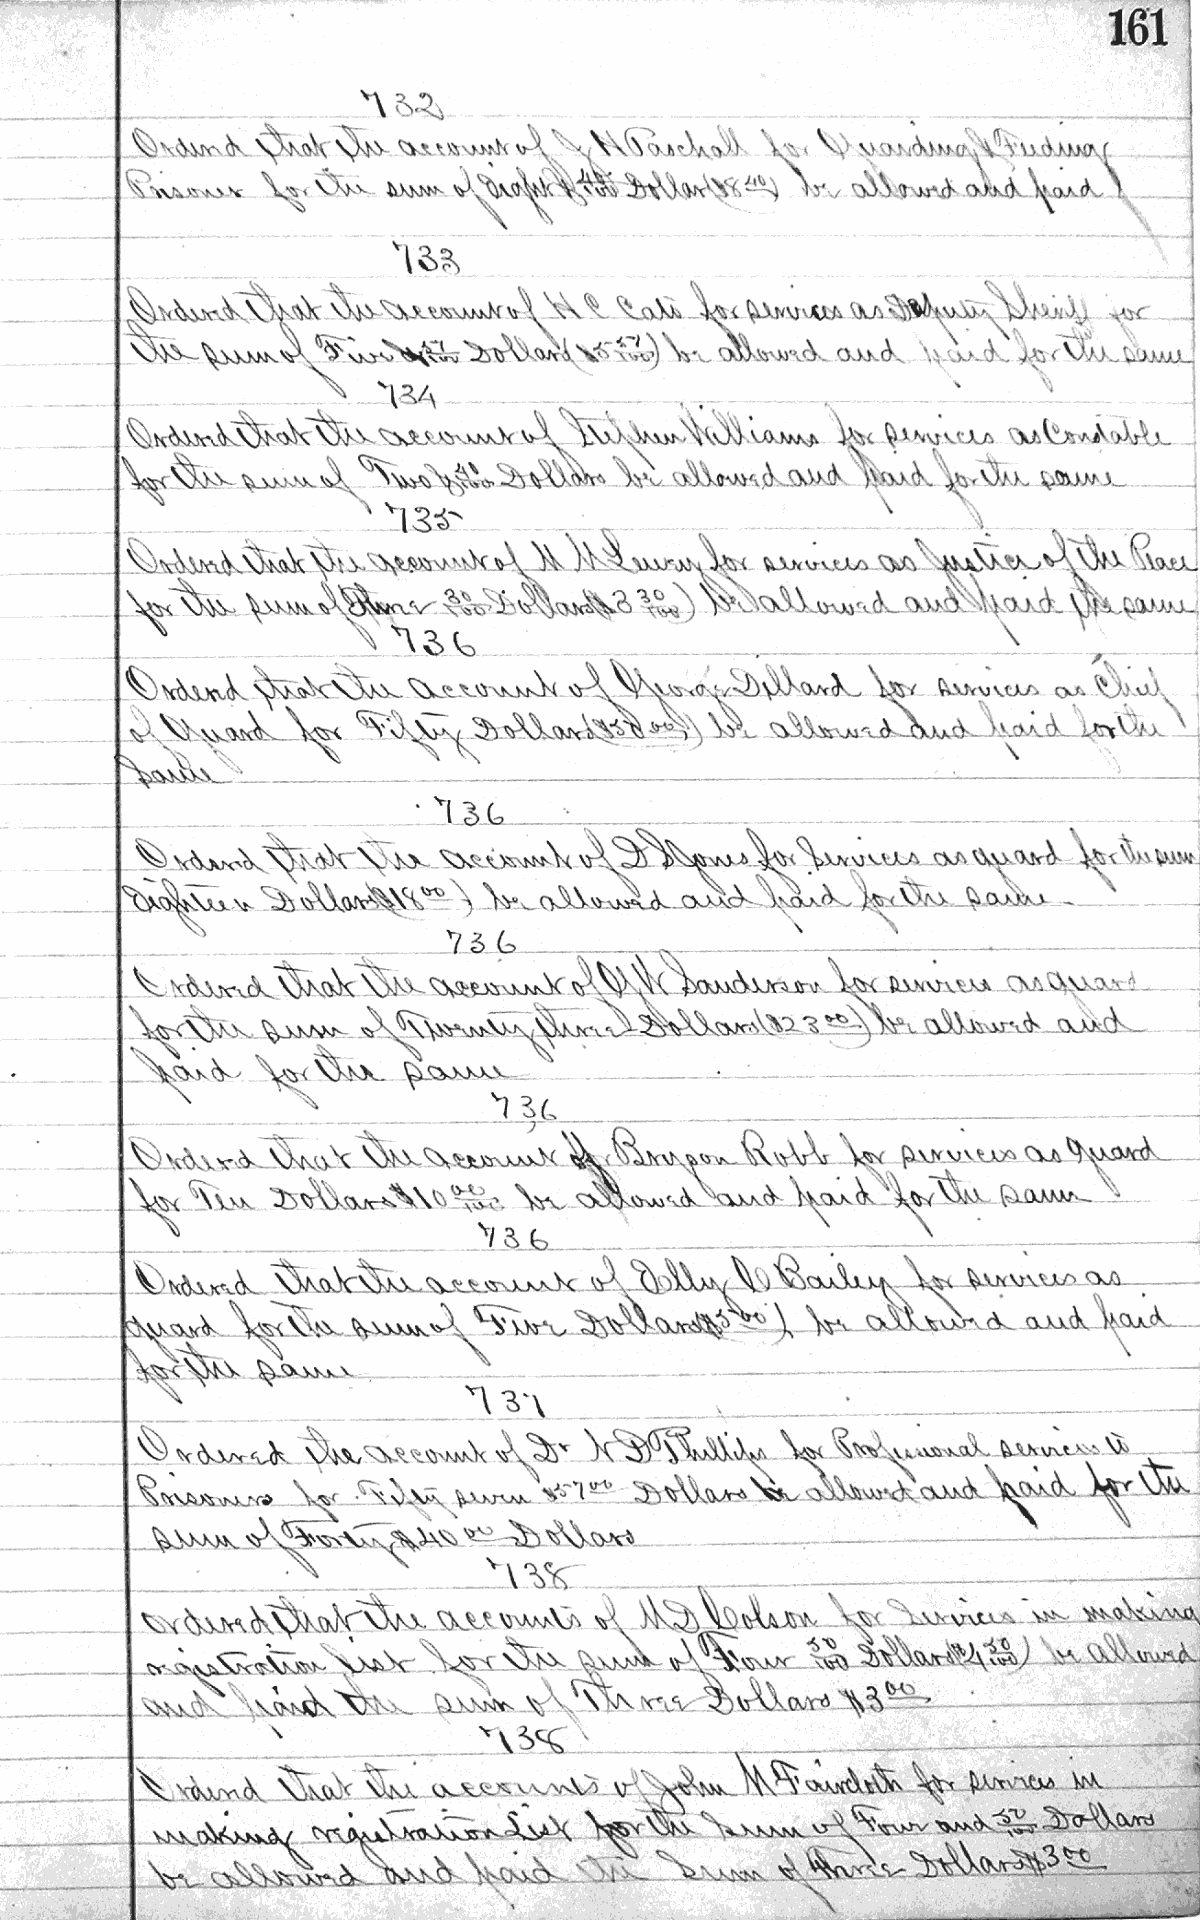 161
732
Ordered that the account of J H Paschall for Guarding & Feeding
Prisoner for the sum of Eight & 40/100 Dollars ($8 40) be allowed and paid
733
Ordered that the account of H C Cato for services as Deputy Sheriff for
the sum of Five 57/100 Dollars ($5 57/100) be allowed and paid for the same
734
Ordered that the account of Stephen Williams for services as Constable
for the sum of Two & 40/100 Dollars be allowed and paid for the same
735
Ordered that the account of for services as Justice of the Peace
for the sum of Three 30/100 Dollars $3 30/100) be allowed and paid the same
736
Ordered that the account of George Dillard for services as Chief
of Guard for Fifty Dollars ($50 00) be allowed and paid for the
Same
736
Ordered that the account of D S Jones for Services as guard for the sum
Eighteen Dollars ($18 00) be allowed and paid for the same
736
Ordered that the account of G W Sanderson for services as guard
for the sum of Twenty three Dollars ($23 00) be allowed and
paid for the same
736
Ordered that the account of Bryson Robb for services as guard
for Ten Dollars $10 00/100 be allowed and paid for the same
736
Ordered that the account of Bailey for services as
guard for the sum of Five Dollars ($5 00) be allowed and paid
for the same
737
Ordered the account of Dr N D Phillips for Professional services to
Prisoners for Fifty seven $57 00 Dollars be allowed and paid for the
sum of Forty $40 00 Dollars
738
Ordered that the accounts of M D Colson for Services in making
registration list for the sum of Four 50/100 Dollars ($4 50/100) be allowed
and paid the sum of Three Dollars $3 00
738
Ordered that the accounts of John M Faircloth for services in
making registration List for the Sum of Four and 50/100 Dollars
be allowed and paid the Sum of three Dollars $3 00